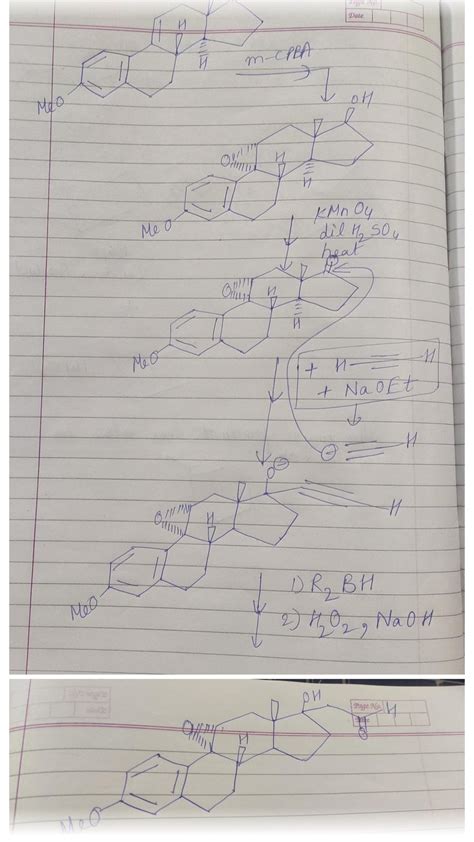 Date
H
H
MeO
m-CPBA
OH
O
H
H
MeO
KMnO4
dil H2SO4
heat
O
O
H
H
MeO
+ H H
+ NaOEt
⊖ H
O⊖
O
H
H
MeO
1) R2BH
2) H2O2, NaOH
OH
Page No.
H
O
O
H
MeO